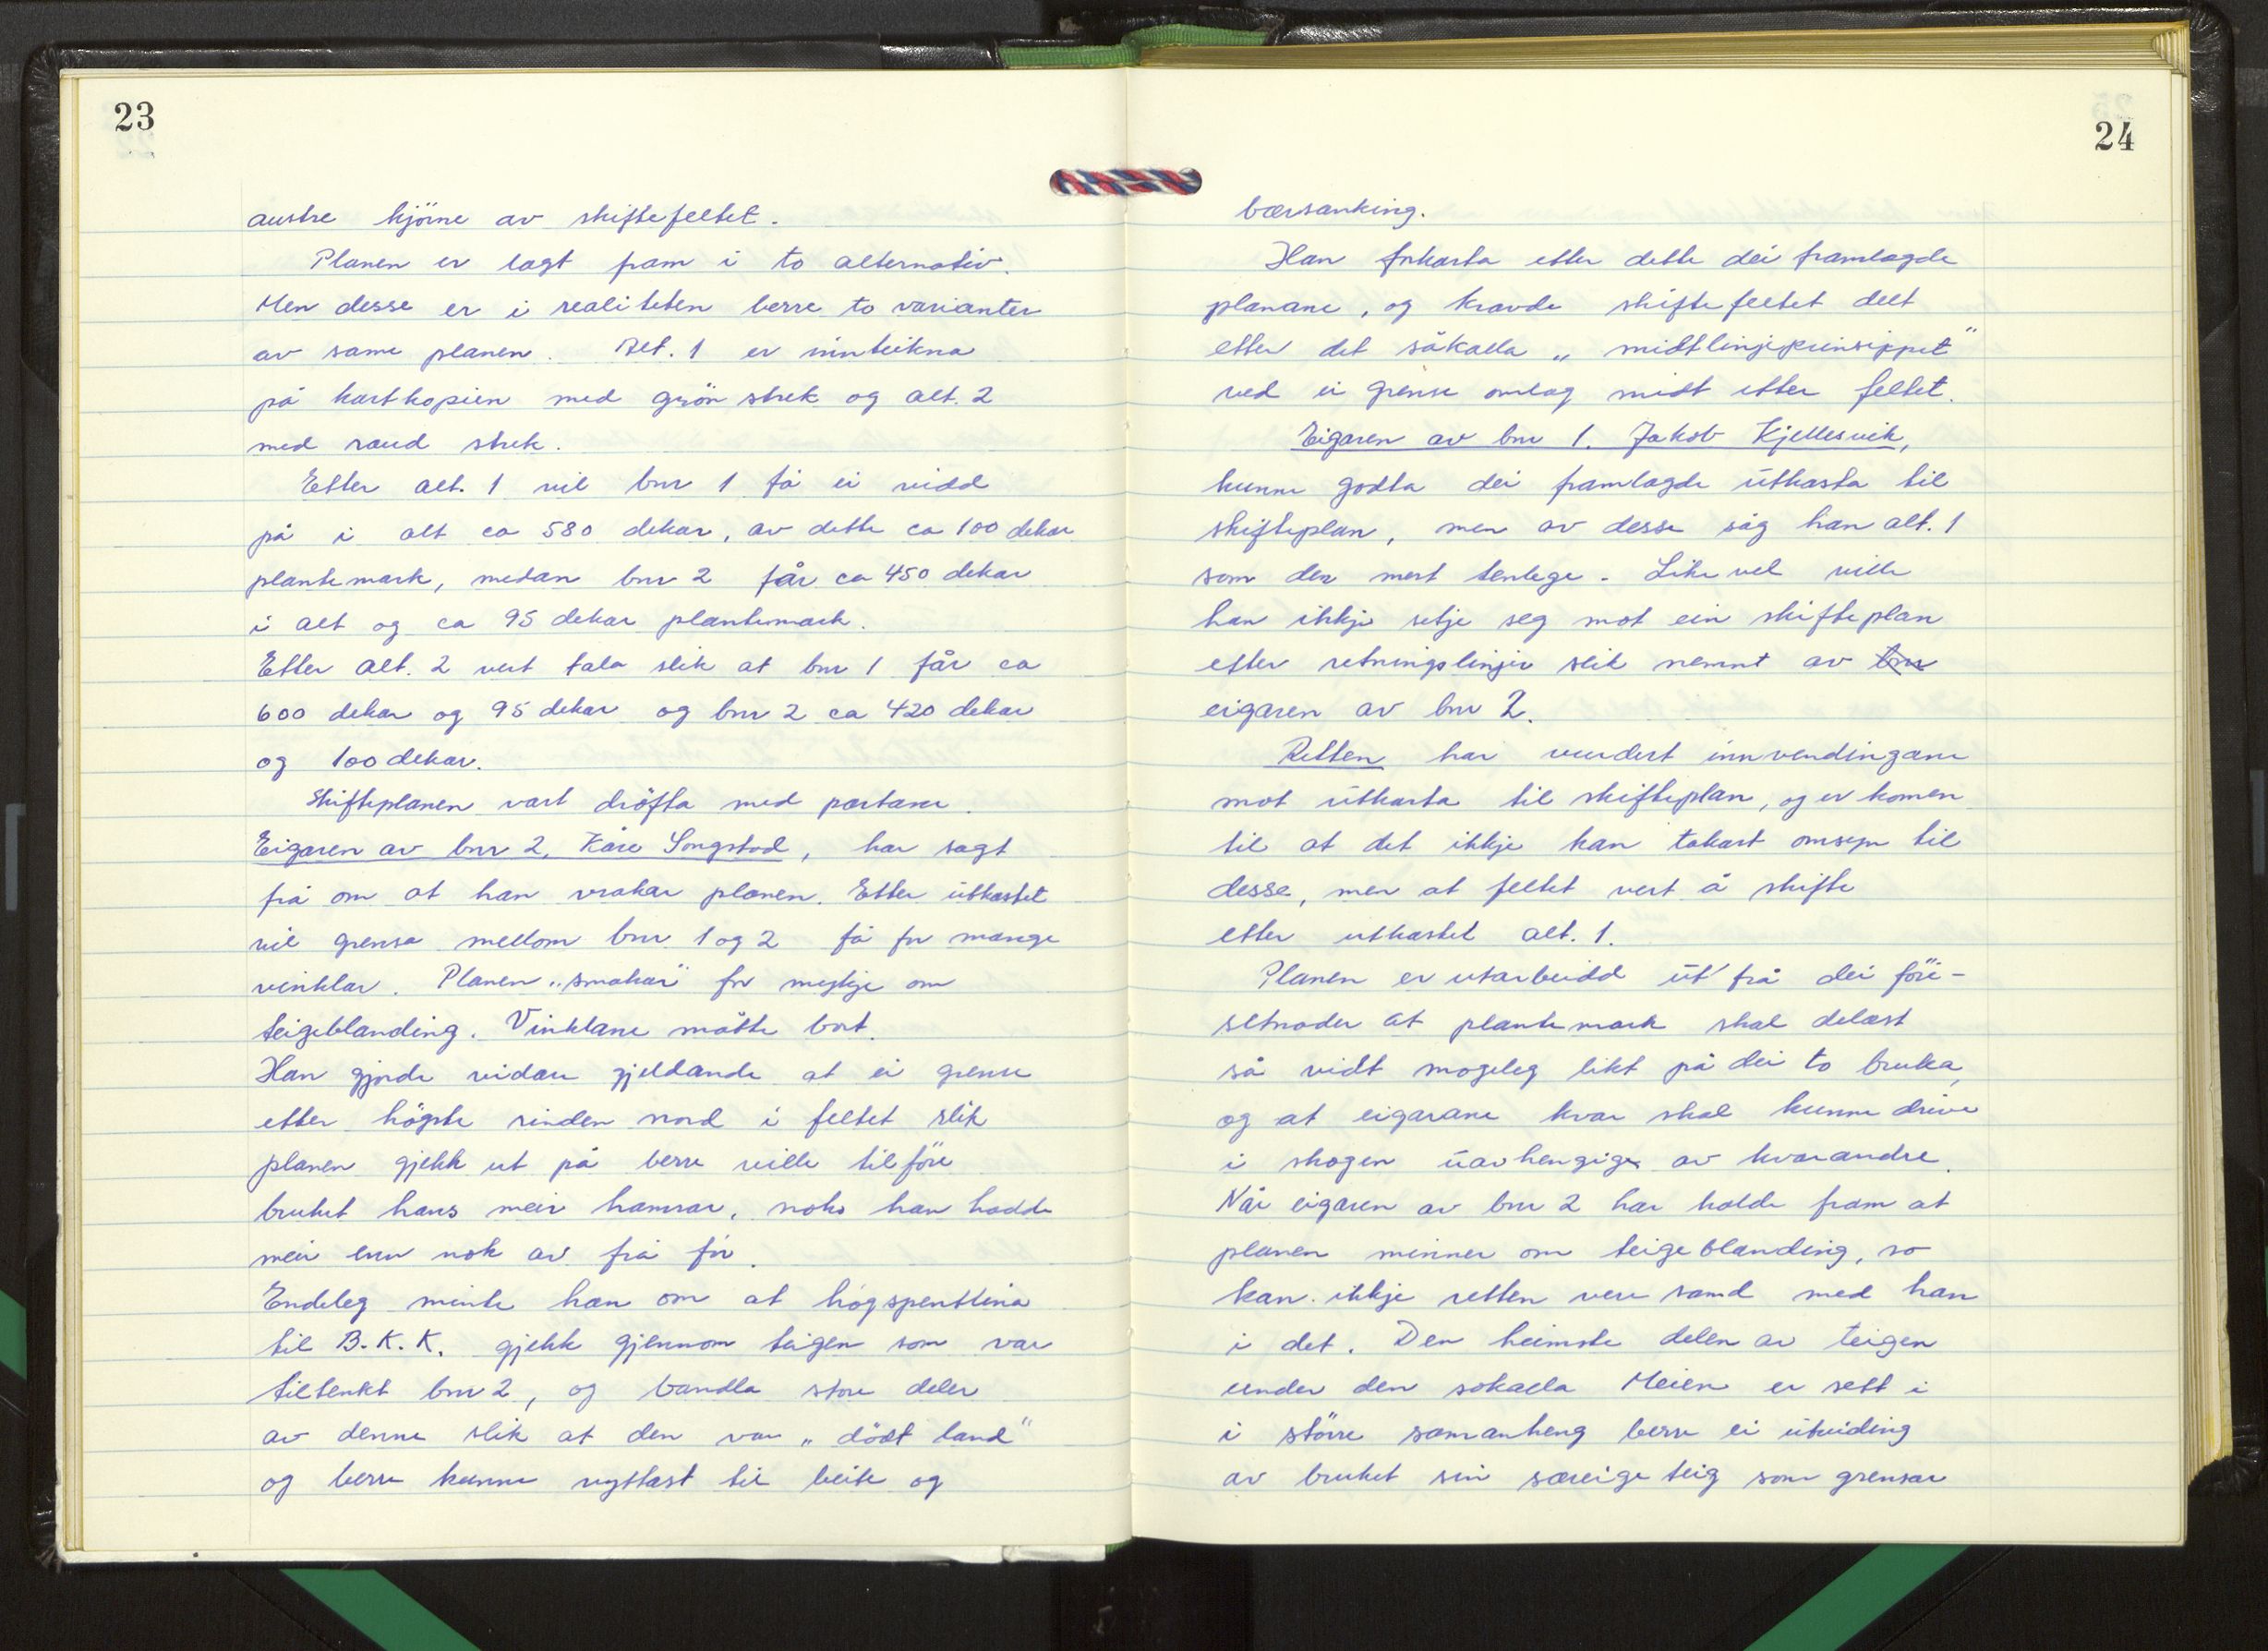 23
austre hjörne av skiftefeltet.
Planen er lagt fram i to alternativ.
Men desse er i realiteten berre to varianter
av same planen. Alt. 1 er innteikna
på kartkopien med grön strek og alt. 2
med raud strek.
Etter alt. 1 vil bnr 1 få ei vidd
på i alt ca 580 dekar, av dette ca 100 dekar
plantemark, medan bnr 2 får ca 450 dekar
i alt og ca 95 dekar plantemark.
Etter alt. 2 vert tala slik at bnr 1 får ca
600 dekar og 95 dekar og bnr 2 ca 420 dekar
og 100 dekar.
Skifteplanen vart dröfta med partane.
Eigaren av bnr 2, Kåre Songstad, har sagt
frå om at han vrakar planen. Etter utkastet
vil grensa mellom bnr 1 og 2 få for mange
vinklar. Planen „smakar" for mykje om
teigeblanding. Vinklane måtte bort.
Han gjorde vidare gjeldande at ei grense
etter högste rinden nord i feltet slik
planen gjekk ut på berre ville tilföre
bruket hans meir hamrar, noko han hadde
meir enn nok av frå för.
Endeleg minte han om at högspentlina
til B.K.K. gjekk gjennom teigen som var
tiltenkt bnr 2, og bandla store deler
av denne slik at den var „dödt land"
og berre kunne nyttast til beite og
24
bærsanking.
Han forkasta etter dette dei framlagde
planane, og kravde skiftefeltet delt
etter det såkalla „midtlinjeprinsippet"
ved ei grense omlag midt etter feltet.
Eigaren av bnr 1. Jakob Kjellesvik,
kunne godta dei framlagde utkasta til
skifteplan, men av desse såg han alt. 1
som den mest tenlege. Likevel ville
han ikkje setje seg mot ein skifteplan
etter retningslinjer slik nemnt av bnr
eigaren av bnr 2.
Retten har vurdert innvendingane
mot utkasta til skifteplan, og er komen
til at det ikkje kan takast omsyn til
desse, men at feltet vert å skifte
etter utkastet alt. 1.
Planen er utarbeidd ut frå dei före-
setnader at plantemark skal delast
så vidt mogeleg likt på dei to bruka,
og at eigarane kvar skal kunne drive
i skogen uavhengige av kvarandre.
Når eigaren av bnr 2 har halde fram at
planen minner om teigeblanding, so
kan ikkje retten vere samd med han
i det. Den heimste delen av teigen
under den sokalla Meien er sett i
i större samanheng berre ei utviding
av bruket sin særeige teig som grensar